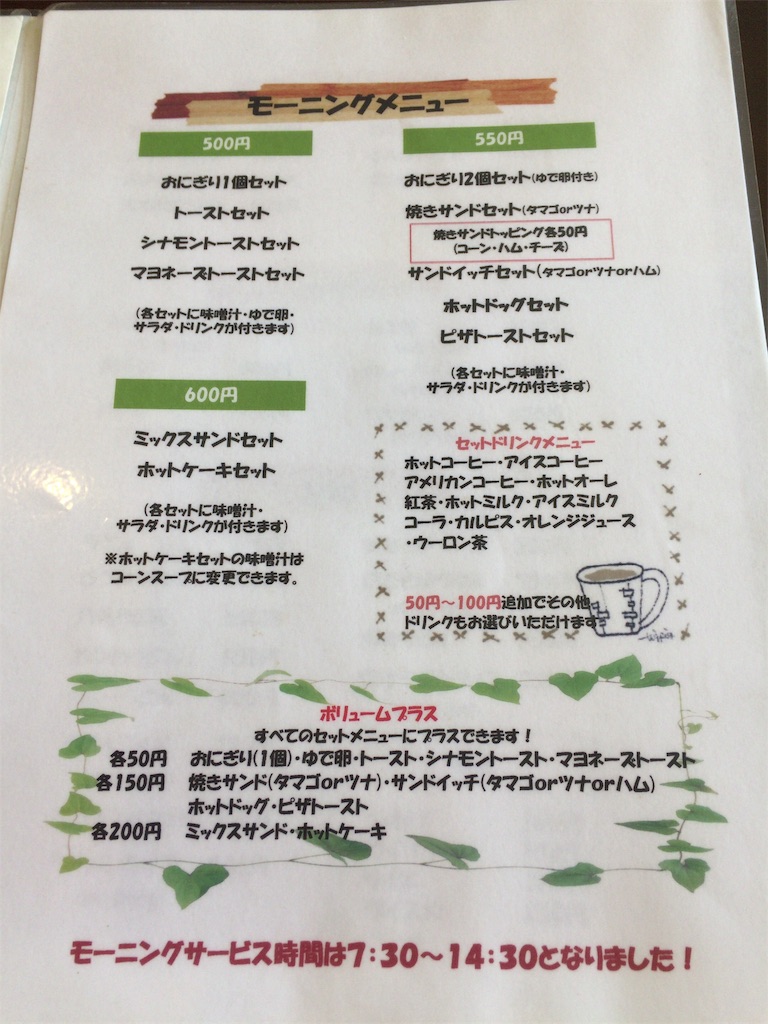 モーニングメニュー
500円
おにぎり1個セット
トーストセット
シナモントーストセット
マヨネーズトーストセット
(各セットに味噌汁・ゆで卵・
サラダ・ドリンクが付きます)
600円
ミックスサンドセット
ホットケーキセット
(各セットに味噌汁・
サラダ・ドリンクが付きます)
※ホットケーキセットの味噌汁は
コーンスープに変更できます。
550円
おにぎり2個セット(ゆで卵付き)
焼きサンドセット(タマゴorツナ)
焼きサンドトッピング各50円
(コーン・ハム・チーズ)
サンドイッチセット(タマゴorツナorハム)
ホットドッグセット
ピザトーストセット
(各セットに味噌汁・
サラダ・ドリンクが付きます)
セットドリンクメニュー
ホットコーヒー・アイスコーヒー
アメリカンコーヒー・ホットオーレ
紅茶・ホットミルク・アイスミルク
コーラ・カルピス・オレンジジュース
・ウーロン茶
50円～100円追加でその他
ドリンクもお選びいただけます
ボリュームプラス
すべてのセットメニューにプラスできます!
各50円 おにぎり(1個)・ゆで卵・トースト・シナモントースト・マヨネーズトースト
各150円 焼きサンド(タマゴorツナ)・サンドイッチ(タマゴorツナorハム)
ホットドッグ・ピザトースト
各200円 ミックスサンド・ホットケーキ
モーニングサービス時間は7:30～14:30となりました!